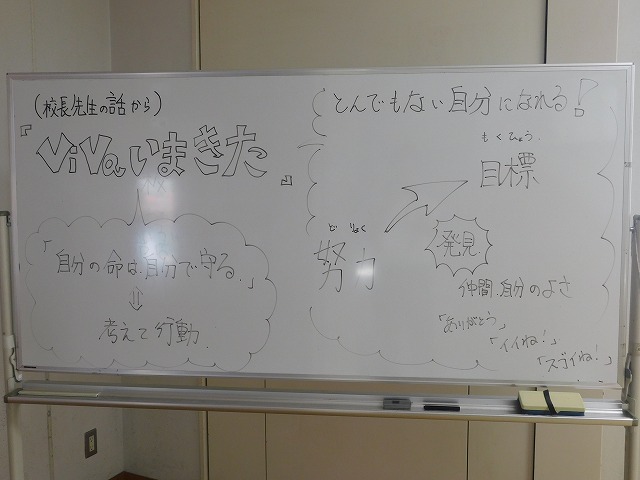 (校長先生の話から)
『ViVaいまきた』
「自分の命は、自分で守る。」
⇓
考えて行動。
とんでもない自分になれる!
もくひょう
目標
どりょく
努力
発見
仲間、自分のよさ
「ありがとう」
「イイね!」
「スゴイね!」